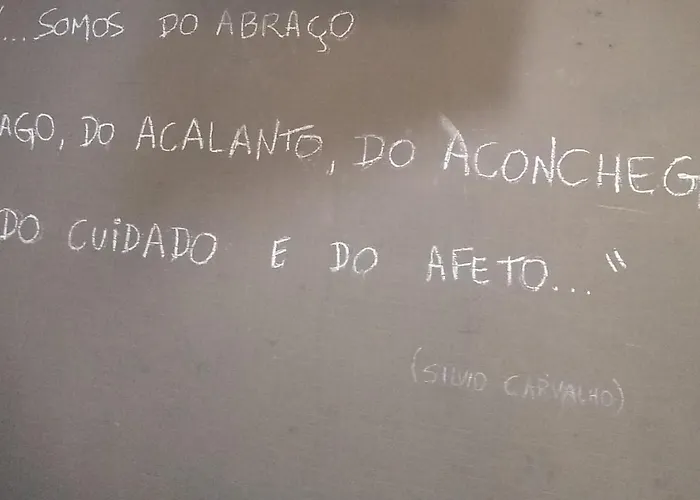 "...SOMOS DO ABRAÇO
AGO, DO ACALANTO, DO ACONCHEG
DO CUIDADO E DO AFETO..."
(SILVIO CARVALHO)